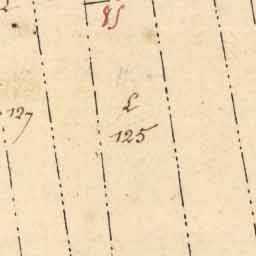 85
127
L
125